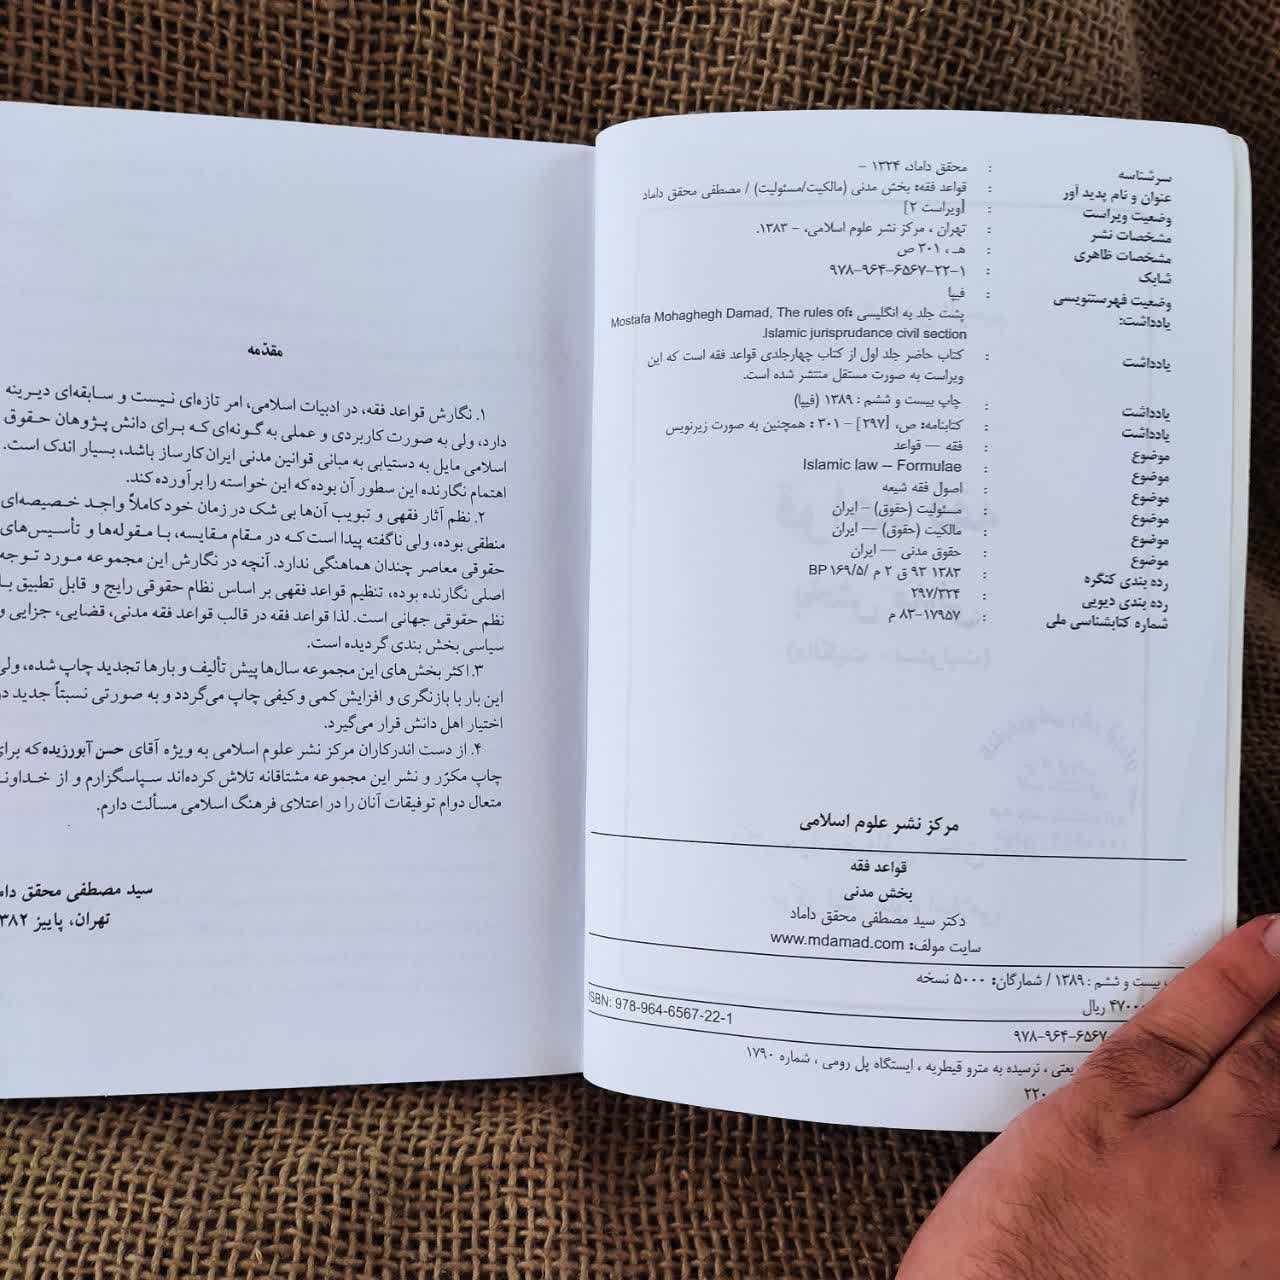 سرشناسه : محقق داماد، ۱۳۲۴ –
عنوان و نام پدید آور : قواعد فقه: بخش مدنی (مالکیت/مسئولیت) / مصطفی محقق داماد
وضعیت ویراست : [ویراست ۲]
مشخصات نشر : تهران ، مرکز نشر علوم اسلامی، – ۱۳۸۳.
مشخصات ظاهری : هـ ، ۳۰۱ ص
شابک : ۹۷۸-۹۶۴-۶۵۶۷-۲۲-۱
وضعیت فهرستنویسی : فیپا
یادداشت: پشت جلد به انگلیسی :Mostafa Mohaghegh Damad, The rules of
Islamic jurisprudance civil section.
یادداشت : کتاب حاضر جلد اول از کتاب چهارجلدی قواعد فقه است که این
ویراست به صورت مستقل منتشر شده است.
یادداشت : چاپ بیست و ششم : ۱۳۸۹ (فیپا)
یادداشت : کتابنامه: ص، [۲۹۷] – ۳۰۱ : همچنین به صورت زیرنویس
موضوع : فقه — قواعد
موضوع : Islamic law – Formulae
موضوع : اصول فقه شیعه
موضوع : مسئولیت (حقوق) – ایران
موضوع : مالکیت (حقوق) — ایران
موضوع : حقوق مدنی — ایران
رده بندی کنگره : ۱۳۸۳ ۹۳ ق ۲ م /BP۱۶۹/۵
رده بندی دیویی : ۲۹۷/۳۲۴
شماره کتابشناسی ملی : ۸۳-۱۷۹۵۷ م
مرکز نشر علوم اسلامی
قواعد فقه
بخش مدنی
دکتر سید مصطفی محقق داماد
سایت مولف: www.mdamad.com
بیست و ششم : ۱۳۸۹ / شمارگان: ۵۰۰۰ نسخه
۴۷۰۰۰ ریال
ISBN: 978-964-6567-22-1
۹۷۸-۹۶۴-۶۵۶۷
، نرسیده به مترو قیطریه ، ایستگاه پل رومی ، شماره ۱۷۹۰
۲۲۰
مقدّمه
۱. نگارش قواعد فقه، در ادبیات اسلامی، امر تازه‌ای نیست و سابقه‌ای دیرینه
دارد، ولی به صورت کاربردی و عملی به گونه‌ای که برای دانش پژوهان حقوق
اسلامی مایل به دستیابی به مبانی قوانین مدنی ایران کارساز باشد، بسیار اندک است.
اهتمام نگارنده این سطور آن بوده که این خواسته را برآورده کند.
۲. نظم آثار فقهی و تبویب آن‌ها بی شک در زمان خود کاملاً واجد خصیصه‌ای
منطقی بوده، ولی ناگفته پیدا است که در مقام مقایسه، با مقوله‌ها و تأسیس‌های
حقوقی معاصر چندان هماهنگی ندارد. آنچه در نگارش این مجموعه مورد توجه
اصلی نگارنده بوده، تنظیم قواعد فقهی بر اساس نظام حقوقی رایج و قابل تطبیق با
نظم حقوقی جهانی است. لذا قواعد فقه در قالب قواعد فقه مدنی، قضایی، جزایی و
سیاسی بخش بندی گردیده است.
۳. اکثر بخش‌های این مجموعه سال‌ها پیش تألیف و بارها تجدید چاپ شده، ولی
این بار با بازنگری و افزایش کمی و کیفی چاپ می‌گردد و به صورتی نسبتاً جدید در
اختیار اهل دانش قرار می‌گیرد.
۴. از دست اندرکاران مرکز نشر علوم اسلامی به ویژه آقای حسن آبورزیده که برای
چاپ مکرّر و نشر این مجموعه مشتاقانه تلاش کرده‌اند سپاسگزارم و از خداوند
متعال دوام توفیقات آنان را در اعتلای فرهنگ اسلامی مسألت دارم.
سید مصطفی محقق داماد
تهران، پاییز ۳۸۲